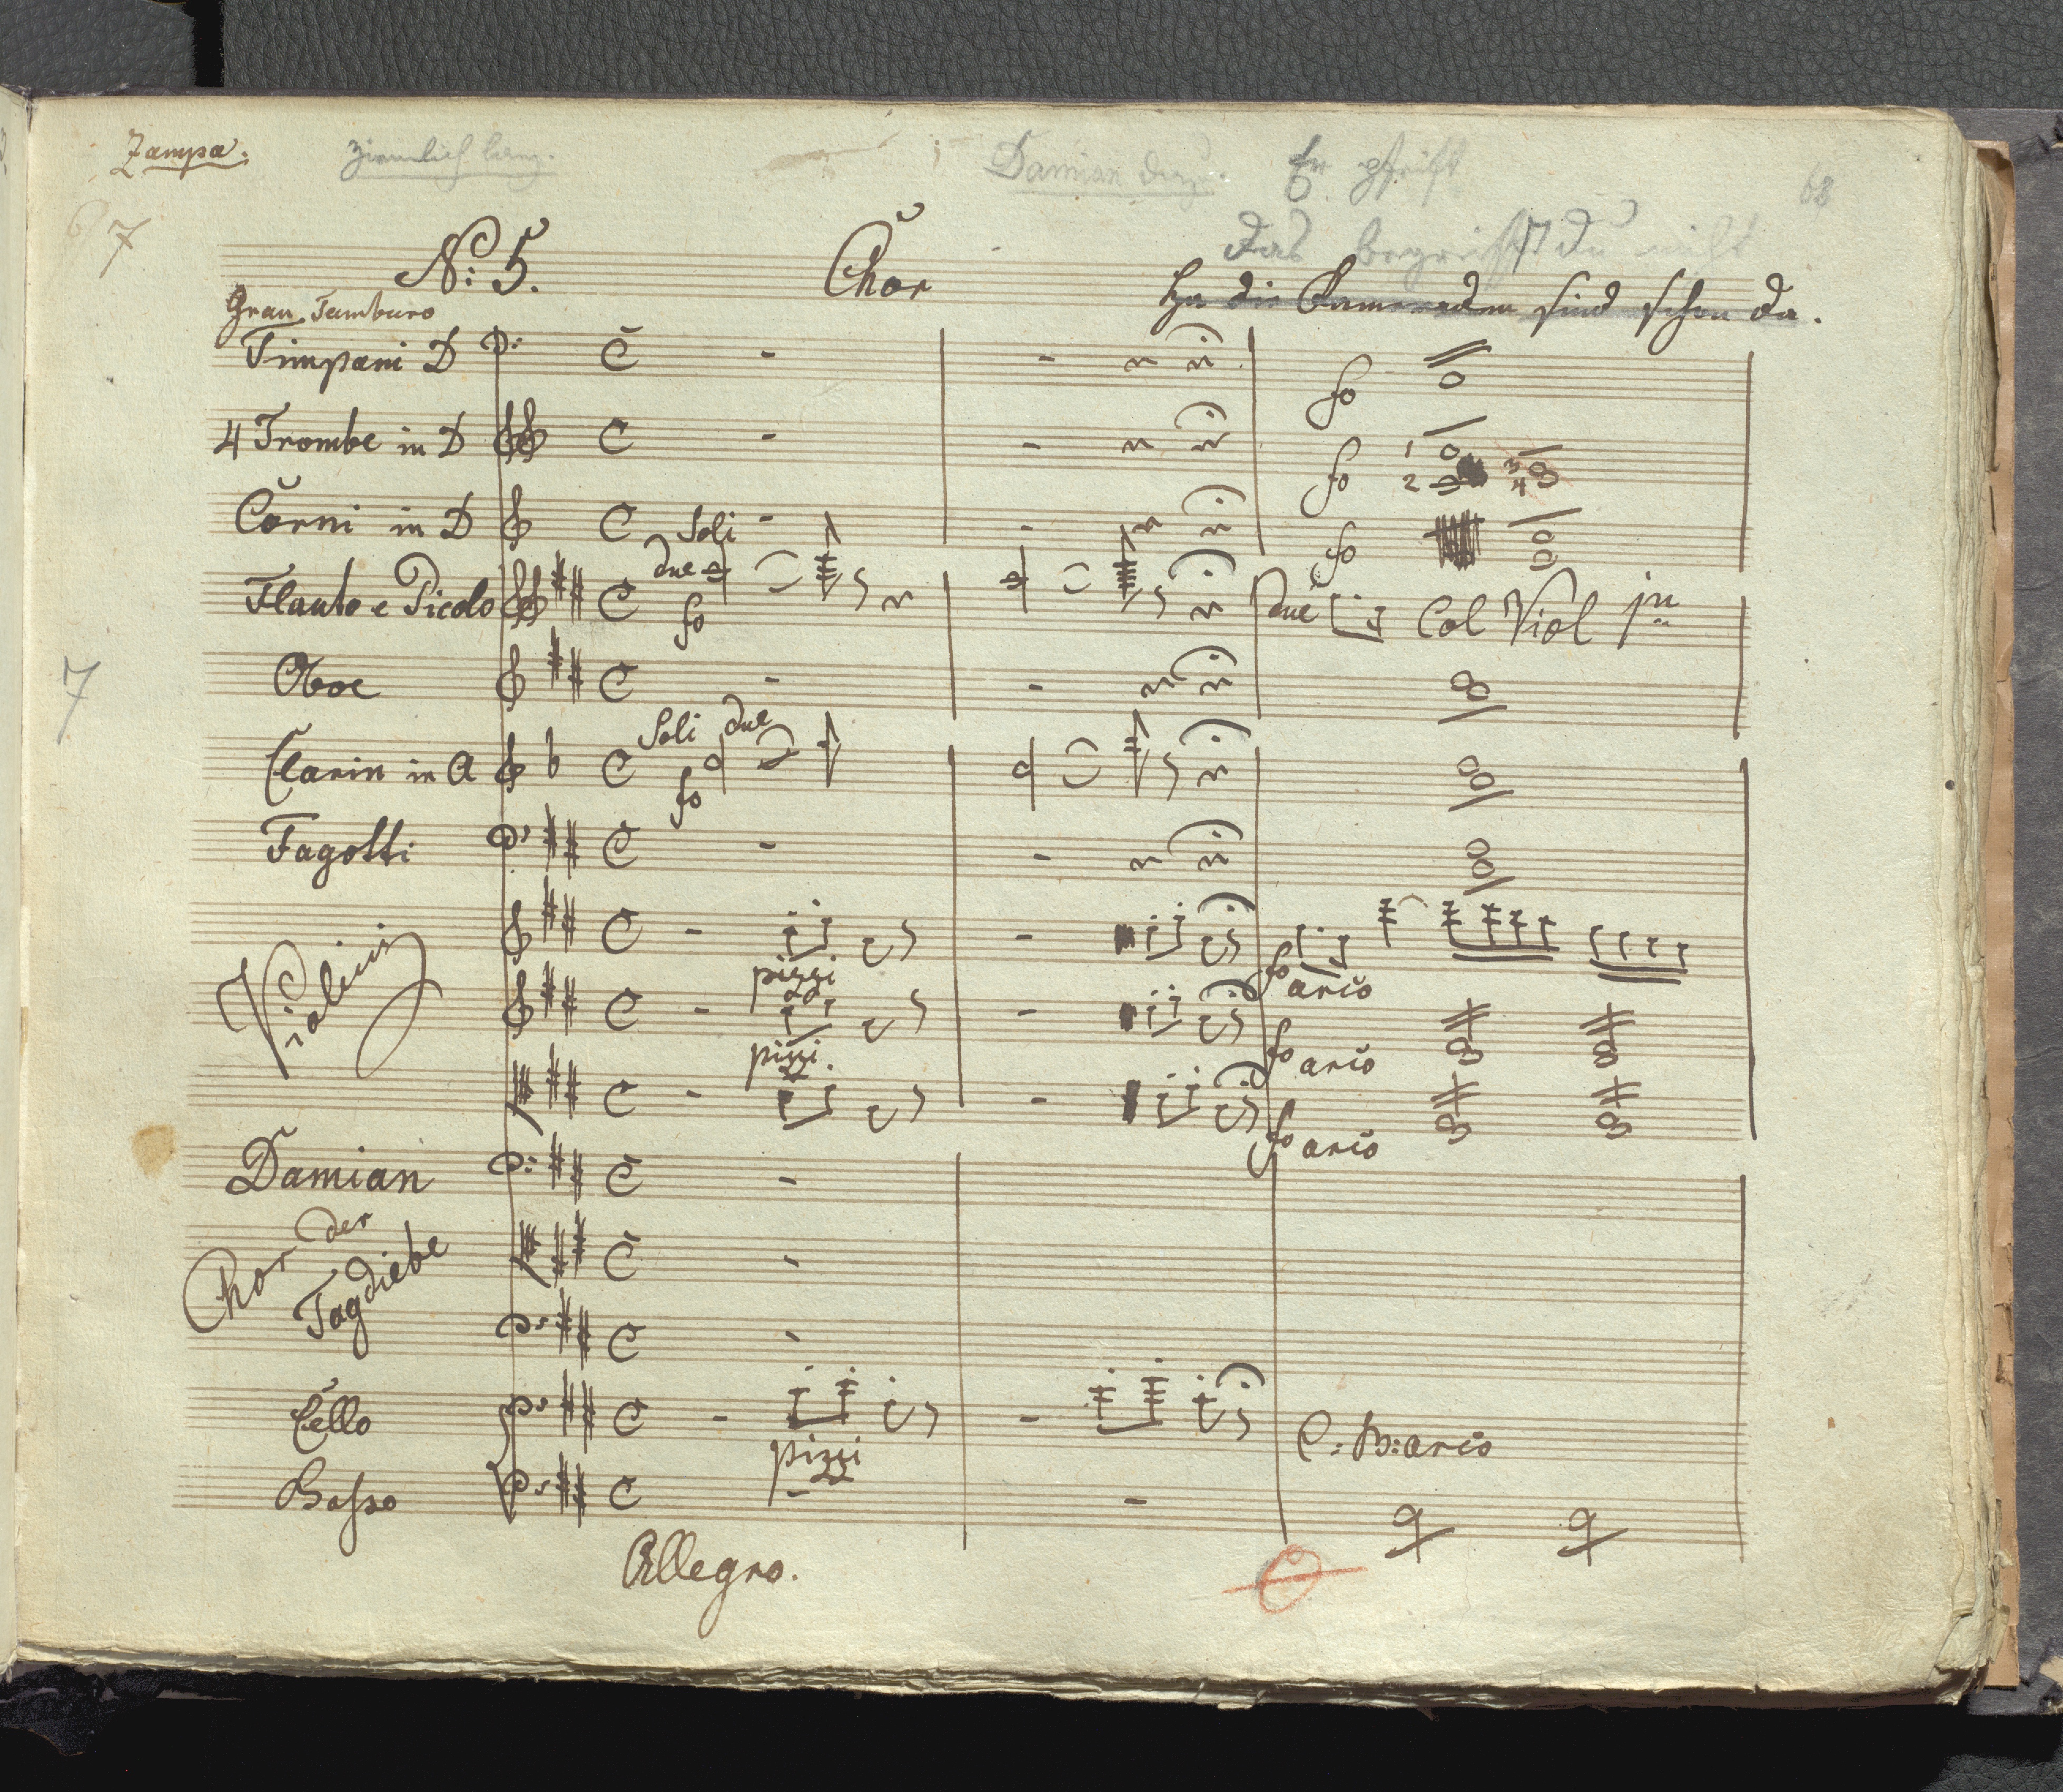 Zampa.
ziemlich lang.
Damian dazu.
Er pfeift
68
7
Das begreifst du nicht
No: 5.
Chor
Ha die Kameraden sind schon da.
Gran Tamburo
Timpani D
fo
4 Trombe in D
fo 1 2 3 4
Corni in D
fo
Soli
due
Flauto e Picolo
fo
due Col Viol 1mo
Oboe
7
Soli due
Clarin in A
fo
Fagotti
Violini
pizzi
fo arco
pizzi.
fo arco
fo arco
Damian
Chor der
Tagdiebe
Cello
pizzi
C: B: arco
Basso
Allegro.